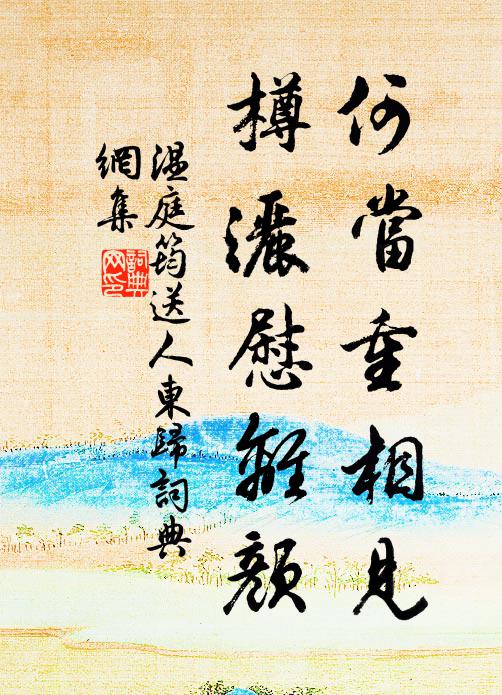 何當重相見
樽灑慰離顏
温庭筠送人東歸詞典
網集
詞典
网印